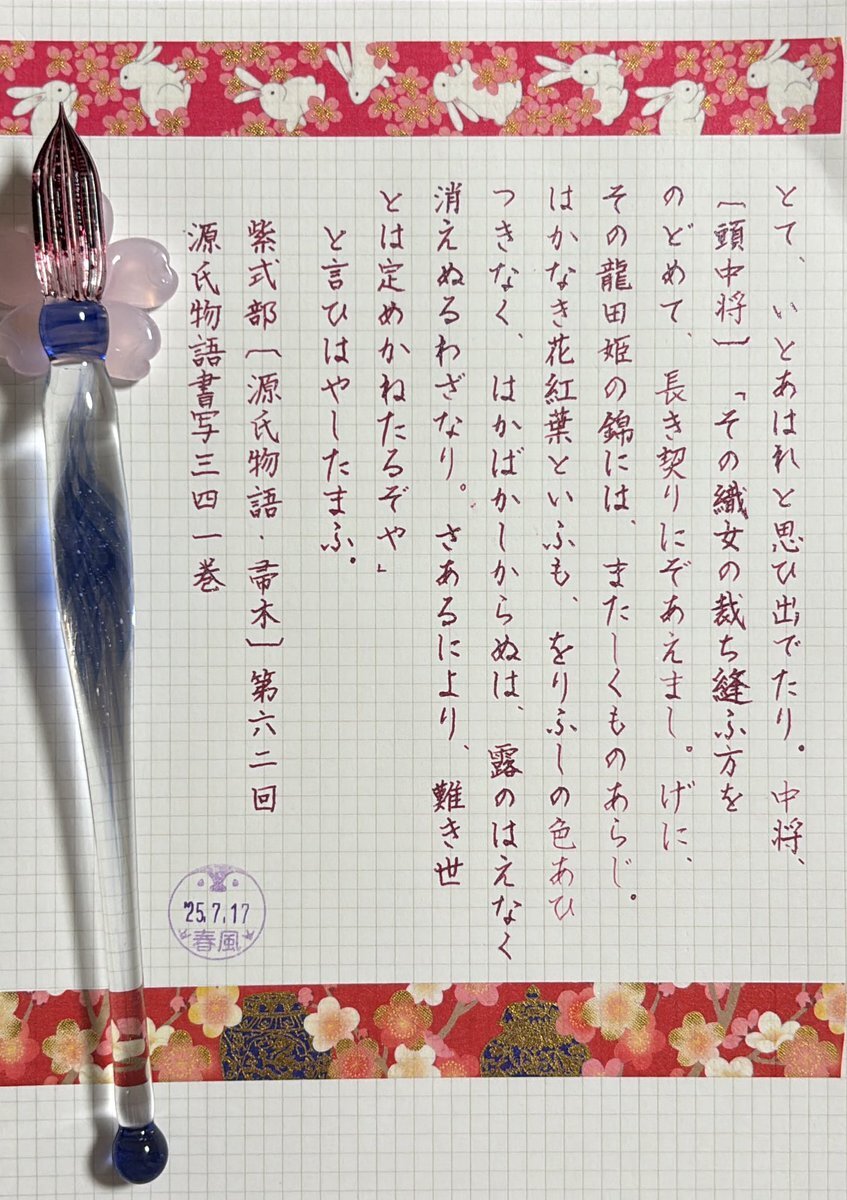 とて、いとあはれと思ひ出でたり。中将、
〔頭中将〕「その織女の裁ち縫ふ方を
のどめて、長き契りにぞあえまし。げに、
その龍田姫の錦には、またしくものあらじ。
はかなき花紅葉といふも、をりふしの色あひ
つきなく、はかばかしからぬは、露のはえなく
消えぬるわざなり。さあるにより、難き世
とは定めかねたるぞや」
と言ひはやしたまふ。
紫式部〔源氏物語・帚木〕第六二回
源氏物語書写三四一巻
'25.7.17
春風